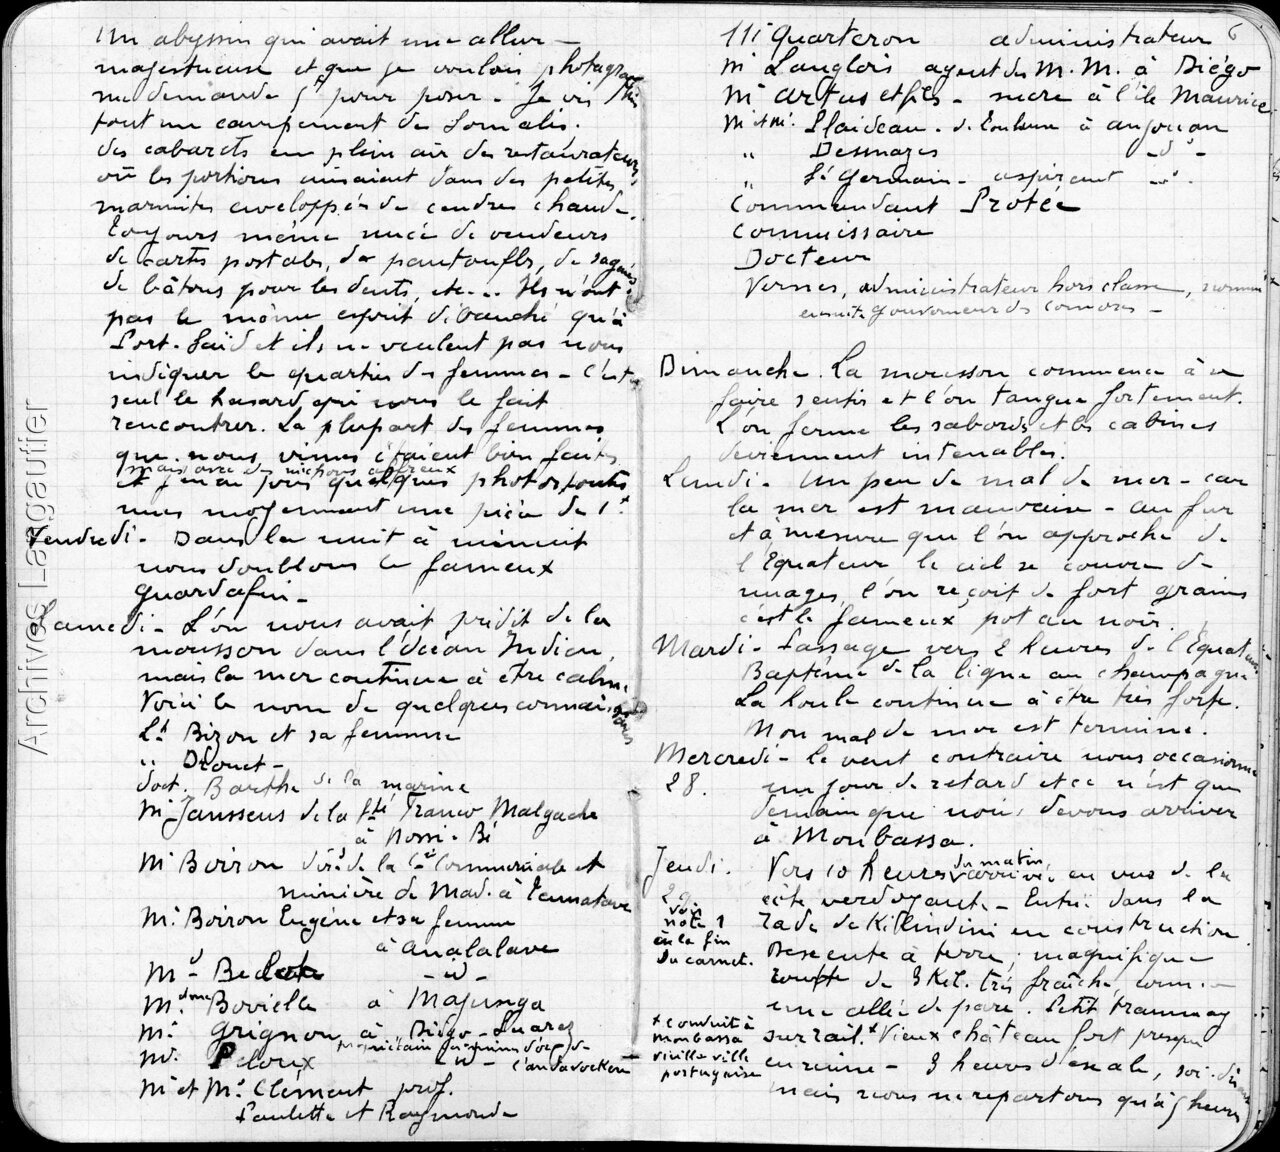 un abyssin qui avait une allure
majestueuse et que je voulais photographier
me demande 5f pour poser. Je vis
tout un campement de Somalis.
des cabarets en plein air des restaurateurs,
où les portions cuisaient dans des petites
marmites enveloppées de cendres chaude.
Toujours même nuée de vendeurs
de cartes postales, de pantoufles, de sagaies
de bâtons pour les dents, etc... Ils n'ont
pas le même esprit débauché qu'à
Port-Saïd et ils ne veulent pas nous
indiquer le quartier des femmes - C'est
seul le hasard qui nous le fait
rencontrer. La plupart des femmes
que nous vîmes étaient bien faites
mais avec des nichons affreux
et j'en ai pris quelques photos toutes
nues moyennant une pièce de 1f
Vendredi - Dans la nuit à minuit
nous doublons le fameux
guardafui -
Samedi - L'on nous avait prédit de la
mousson dans l'Océan Indien,
mais la mer continue à être calme
Voici le nom de quelques connaissances
Lt Bizon et sa femme
" Drouet -
doct. Barthe de la marine
Mr Janssens de la Sté Franco Malgache
à Nossi-Bé
Mr Boiron dir. de la Cie Commerciale et
minière de Mad. à Tamatave
Mr Boiron Eugène et sa femme
à Analalave
Md - d° -
Mdme Bovielle à Majunga
Mr Grignon à Diégo-Suarez
propriétaire de mines d'or de
Mr Peloux - d° - l'andavockera
Mr et Me Clément prof.
Paulette et Raymonde
6
Mr Quarteron administrateur
Mr Langlois agent des M.M. à Diégo
Mr Artus et fils - sucre à l'île Maurice
Mr et Me Plaideau - de Toulouse à anjouan
" Desmazes - d° -
" St Germain - aspirant - d° -
Commandant Protée
Commissaire
Docteur
Vernes, administrateur hors classe, nommé
ensuite gouverneur des comores -
Dimanche. La mousson commence à se
faire sentir et l'on tangue fortement.
L'on ferme les sabords et les cabines
deviennent intenables.
Lundi - Un peu de mal de mer - car
la mer est mauvaise - au fur
et à mesure que l'on approche de
l'Equateur le ciel se couvre de
nuages, l'on reçoit de fort grains
c'est le fameux pot au noir.
Mardi - Passage vers 2 heures de l'Equateur
Baptême de la ligne au champagne
La houle continue à être très forte.
Mon mal de mer est terminé.
Mercredi - le vent contraire nous occasionne
28. un jour de retard et ce n'est que
demain que nous devons arriver
à Monbassa.
Jeudi. Vers 10 heures du matin, arrivée en vue de la
29 côte verdoyante - Entrée dans la
voir note 1 rade de Killindini en construction.
à la fin Descente à terre, magnifique
du carnet. route de 3 Kil. très fraîche, comme
une allée de parc. Petit tramway
+ conduit à sur rail.+ Vieux château fort presque
monbassa
vieille ville en ruine - 3 heures d'escale, soi-disant
portugaise
mais nous ne repartons qu'à 5 heures
Archives Lagautier